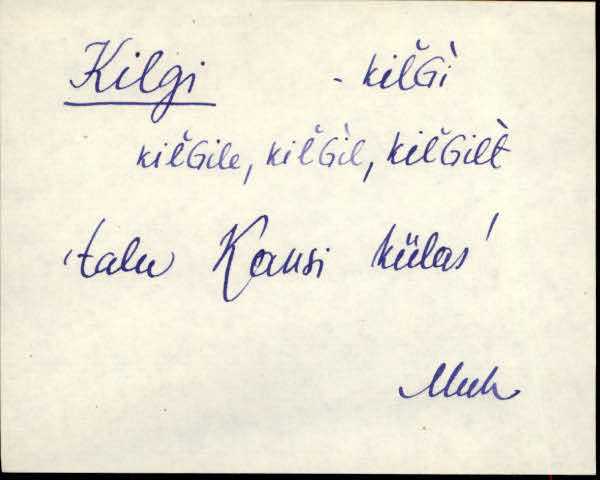 Kilgi - kil̆Gì
kil̆Gile, kil̆Gìl, kil̆Gilt̀
'talu Kansi külas'
Muh